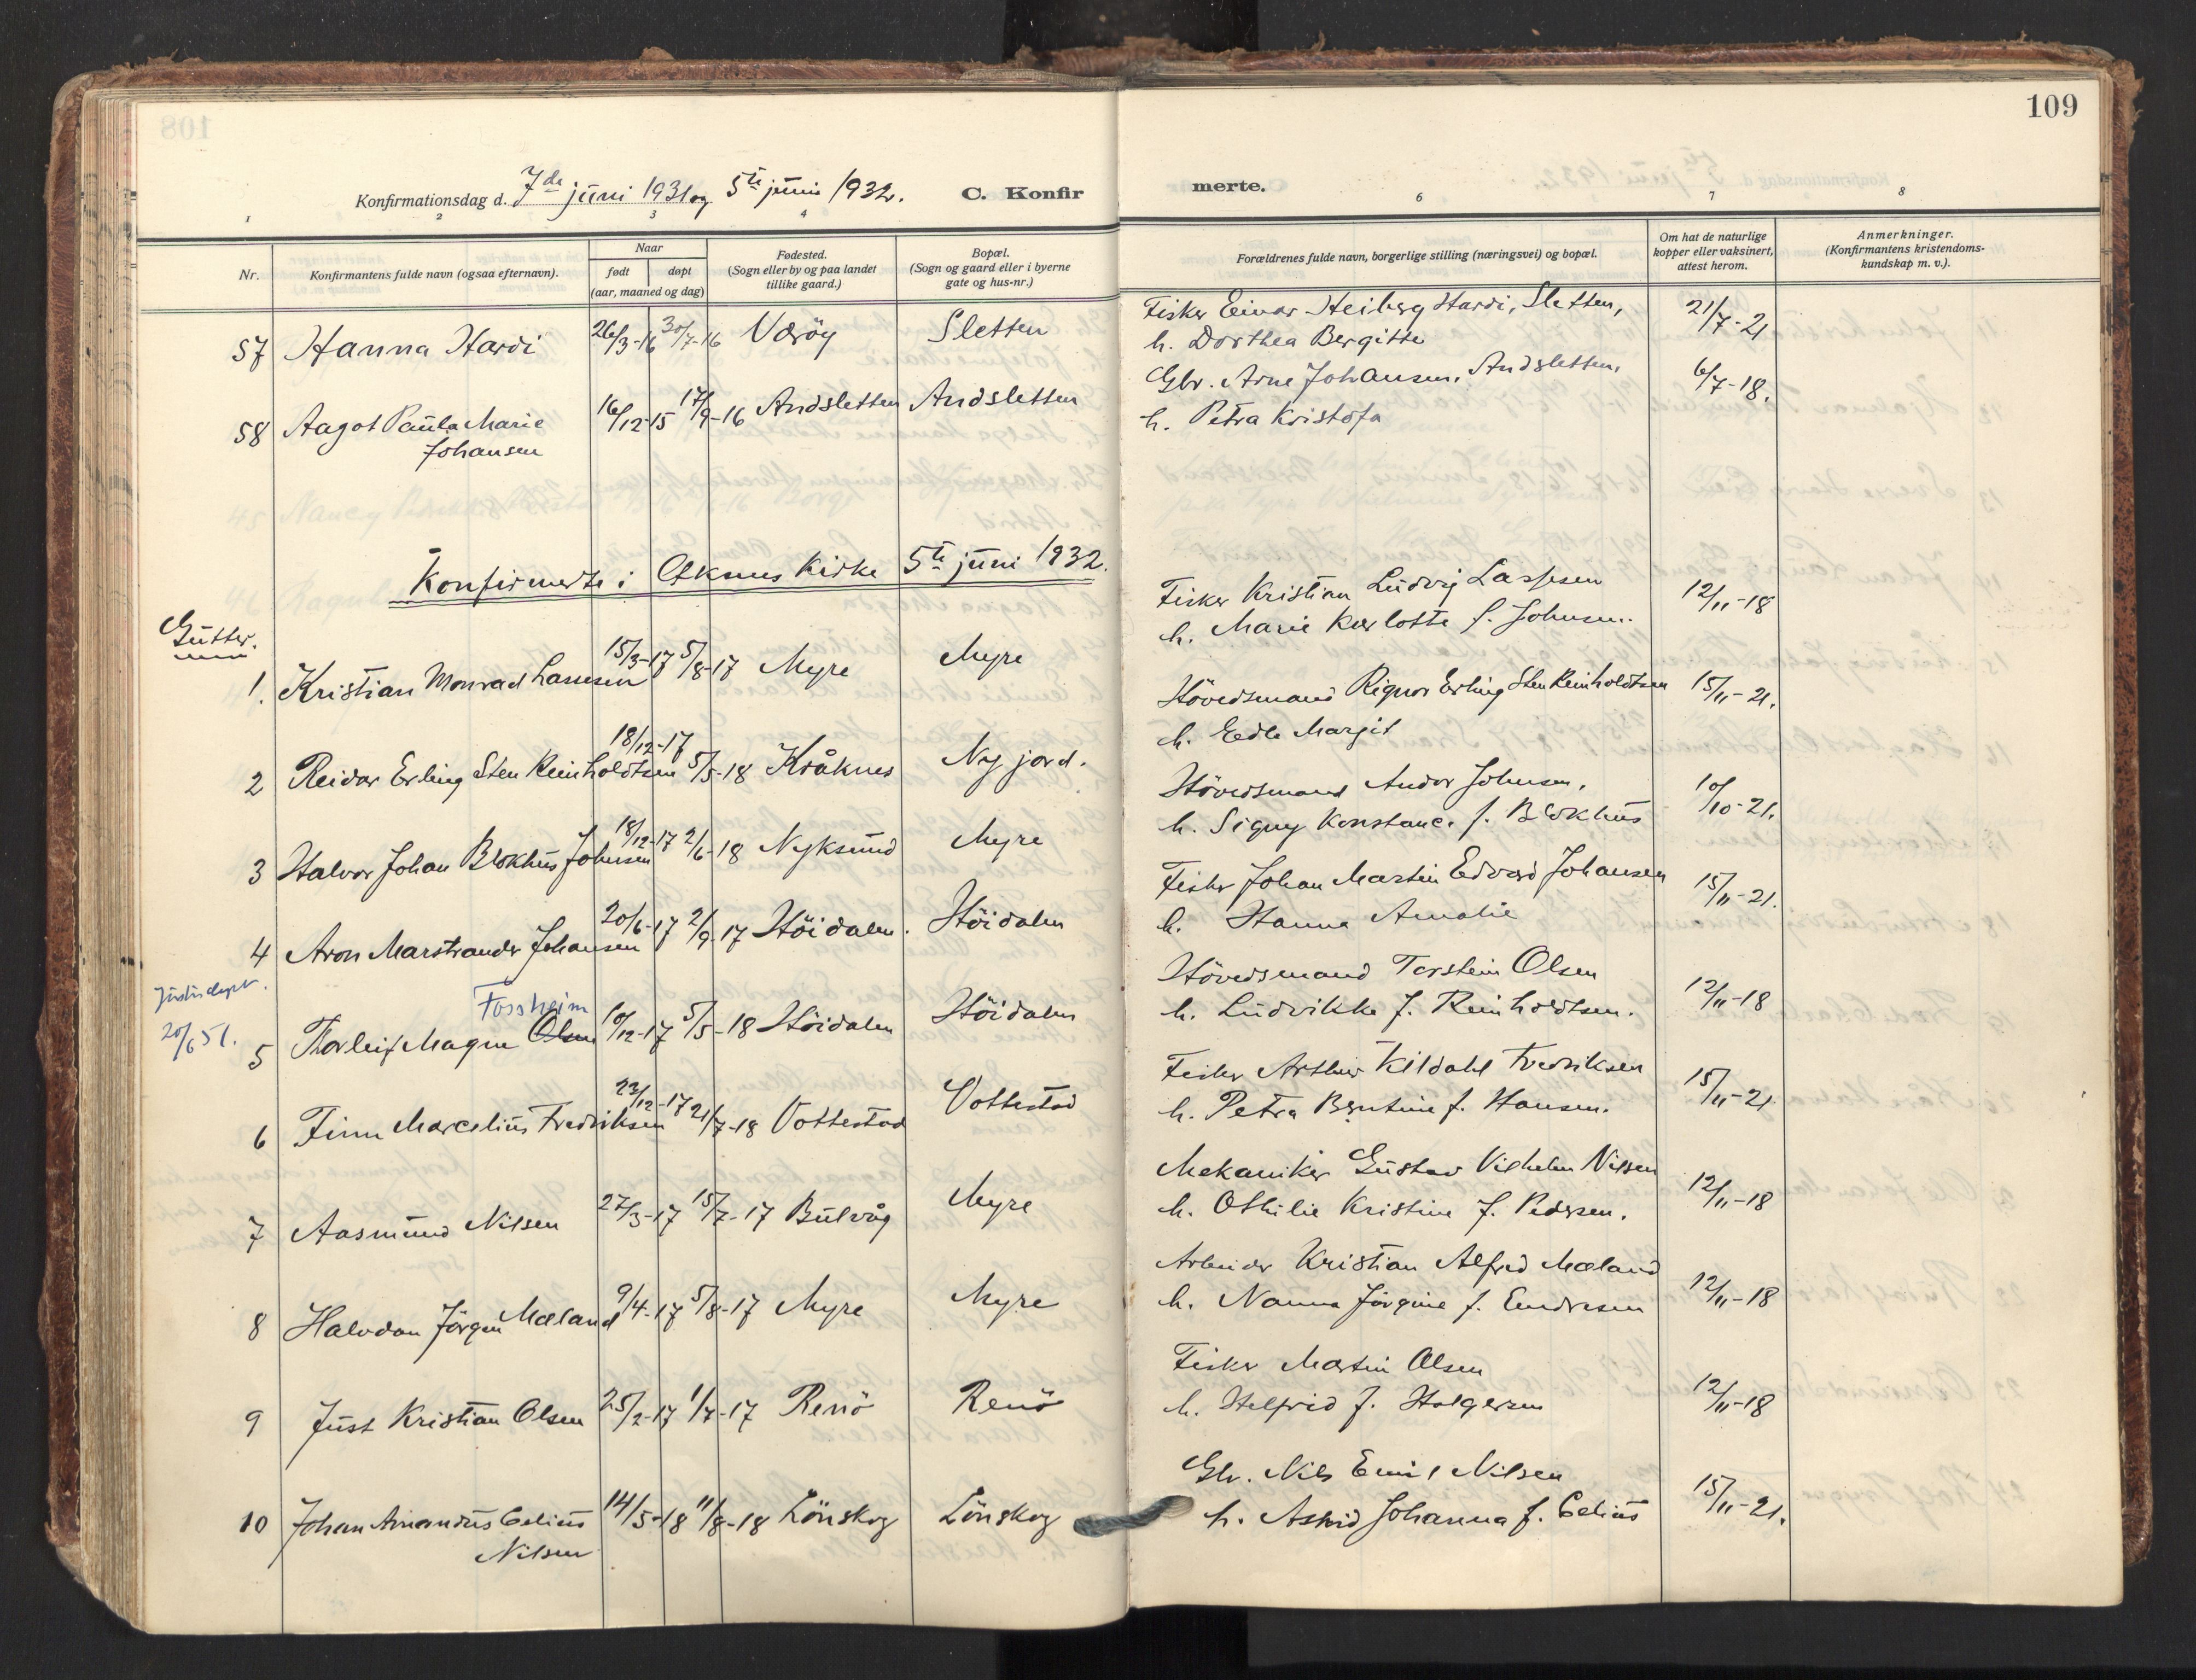 109
Konfirmationsdag d. 7de juni 1931 og 5te juni 1932. C. Konfirmerte.
1 2 3 4 6 7 8
Nr. Konfirmantens fulde navn (ogsaa efternavn). Naar født døpt (aar, maaned og dag) Fødested. (Sogn eller by og paa landet tillike gaard.) Bopæl. (Sogn og gaard eller i byerne gate og hus-nr.) Forældrenes fulde navn, borgerlige stilling (næringsvei) og bopæl. Om hat de naturlige kopper eller vaksinert, attest herom. Anmerkninger. (Konfirmantens kristendomskundskap m. v.).
57 Hanna Hardi 26/3-16 30/7-16 Væröy Sletten Fisker Einar Heiberg Hardi, Sletten, 21/7-21
h. Dorthea Bergitte
58 Aagot Paula Marie 16/12-15 17/9-16 Andsletten Andsletten Gbr. Arne Johansen, Andsletten, 6/7-18.
Johansen h. Petra Kristofa
Konfirmerte i Öksnes Kirke 5te juni 1932.
Gutter.
1. Kristian Monrad Lassesen 15/3-17 5/8-17 Myre Myre Fisker Kristian Ludvig Lassesen 12/11-18
h. Marie Karlotte f. Johnsen.
2 Reidar Erling Sten Reinholdtsen 18/12-17 5/5-18 Kråknes Ny jord. Hövedsmand Rignor Erling Sten Reinholdtsen 15/11-21.
h. Edle Margit
3 Halvor Johan Blokhus Johnsen 18/12-17 2/6-18 Nyksund Myre Hövedsmand Andor Johnsen, 10/10-21.
h. Signy Konstance f. Blokhus
4 Aron Marstrander Johansen 20/6-17 2/9-17 Höidalen. Höidalen Fisker Johan Martin Edvard Johansen 15/11-21.
h. Hanna Amalie
Justisdept.
20/6 51.
Fossheim
5 Thorleif Magne Olsen 10/12-17 5/5-18 Höidalen Höidalen Hövedsmand Torstein Olsen 12/11-18
h. Ludvikke f. Reinholdtsen.
6 Finn Marcelius Fredriksen 23/12-17 21/7-18 Vottestad Vottestad Fisker Arthur Kildahl Fredriksen 15/11-21
h. Petra Berntine f. Hansen.
7 Aasmund Nilsen 27/3-17 15/7-17 Bulvåg Myre Mekaniker Gustav Vilhelm Nilsen 12/11-18
h. Othilie Kristine f. Pedersen.
8 Halvdan Jörgen Mæland 9/4-17 5/8-17 Myre Myre Arbeider Kristian Alfred Mæland 12/11-18
h. Nanna Jörgine f. Endresen
9 Just Kristian Olsen 25/2-17 1/7-17 Renö Renö Fisker Martin Olsen 12/11-18
h. Helfrid f. Holgersen
10 Johan Amandus Celius 14/5-18 11/8-18 Lönskog Lönskog Gbr. Nils Emil Nilsen 15/11-21.
Nilsen h. Astrid Johanna f. Celius